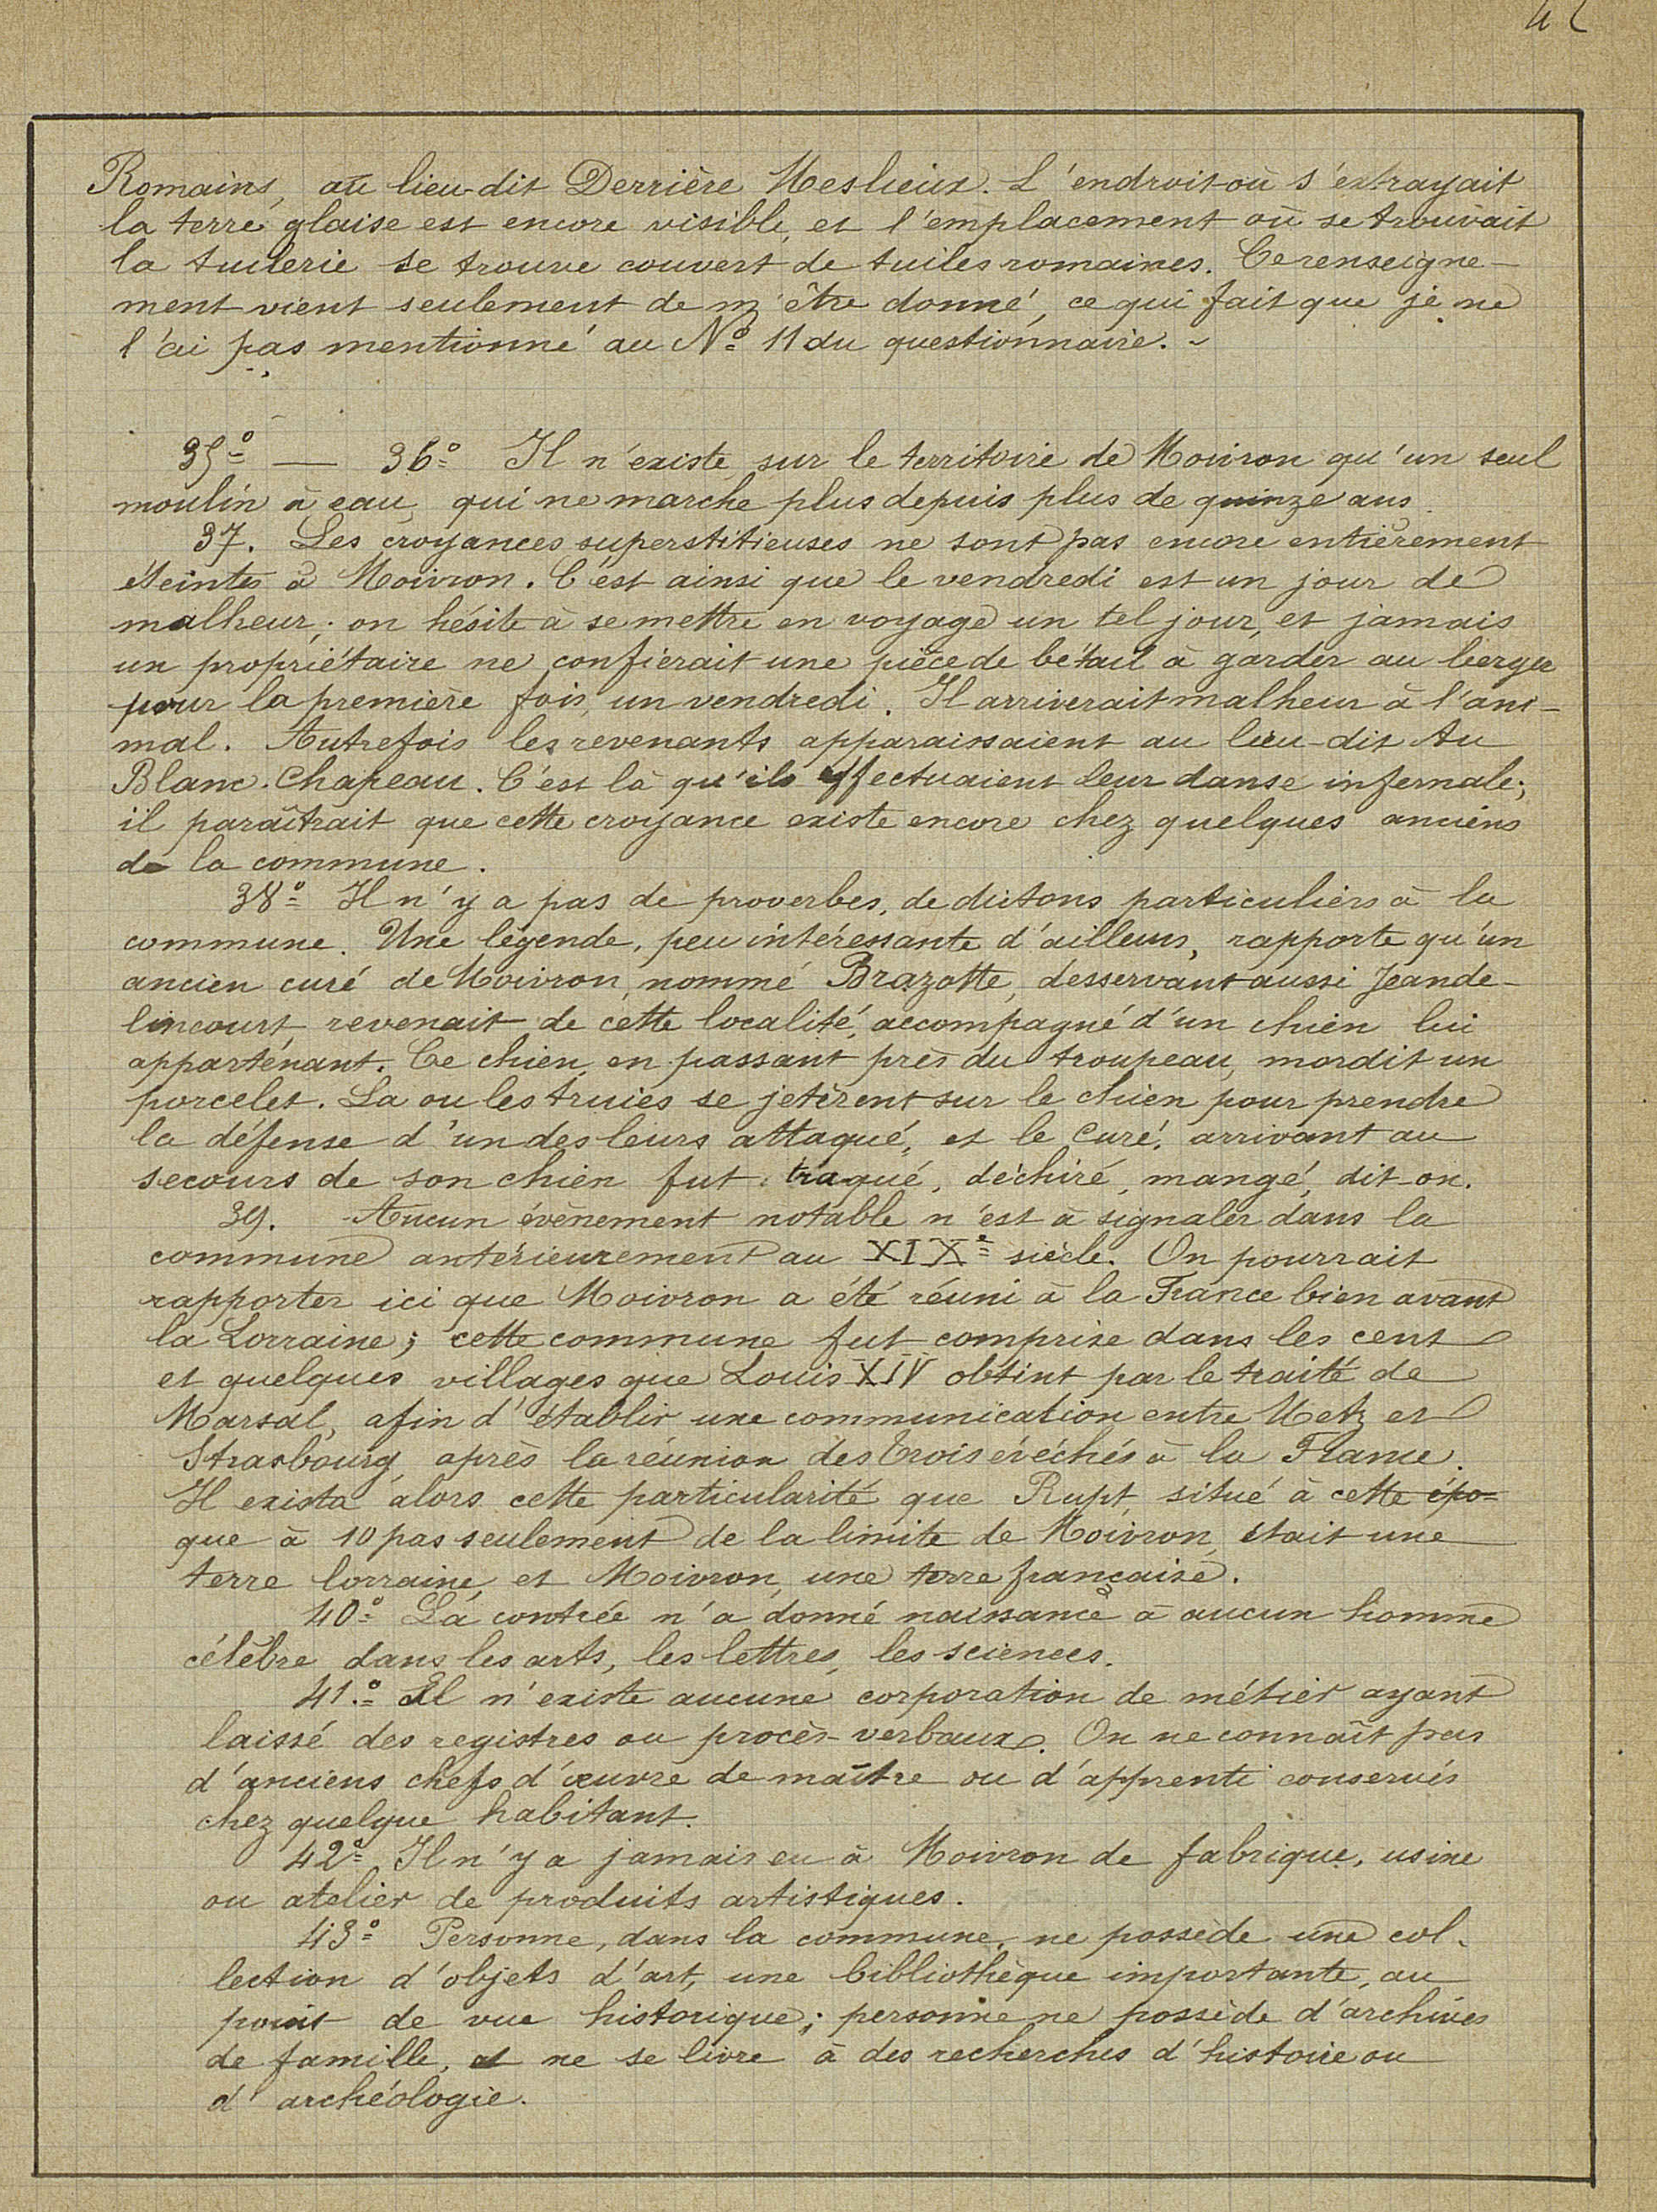 42
Romains, au lieu-dit Derrière Meslieux. L'endroit où s'extrayait
la terre glaise est encore visible, et l'emplacement où se trouvait
la tuilerie se trouve couvert de tuiles romaines. Ce renseigne-
ment vient seulement de m'être donné, ce qui fait que je ne
l'ai pas mentionné au No 11 du questionnaire. -
35o — 36o Il n'existe sur le territoire de Moivron qu'un seul
moulin à eau, qui ne marche plus depuis plus de quinze ans.
37. Les croyances superstitieuses ne sont pas encore entièrement
éteintes à Moivron. C'est ainsi que le vendredi est un jour de
malheur; on hésite à se mettre en voyage un tel jour, et jamais
un propriétaire ne confierait une pièce de bétail à garder au berger
pour la première fois, un vendredi. Il arriverait malheur à l'ani-
mal. Autrefois les revenants apparaissaient au lieu-dit Au
Blanc-Chapeau. C'est là qu'ils effectuaient leur danse infernale;
il paraîtrait que cette croyance existe encore chez quelques anciens
de la commune.
38o Il n'y a pas de proverbes, de dictons particuliers à la
commune. Une légende, peu intéressante d'ailleurs, rapporte qu'un
ancien curé de Moivron, nommé Brazotte, desservant aussi Jeande-
lincourt revenait de cette localité, accompagné d'un chien lui
appartenant. Ce chien, en passant près du troupeau, mordit un
porcelet. La ou les truies se jetèrent sur le chien pour prendre
la défense d'un des leurs attaqué, et le Curé, arrivant au
secours de son chien fut traqué, déchiré, mangé, dit-on.
39. Aucun évènement notable n'est à signaler dans la
commune antérieurement au XIXe siècle. On pourrait
rapporter ici que Moivron a été réuni à la France bien avant
la Lorraine; cette commune fut comprise dans les cent
et quelques villages que Louis XIV obtint par le traité de
Marsal, afin d'établir une communication entre Metz et
Strasbourg, après la réunion des Trois évéchés à la France.
Il exista alors cette particularité que Rupt, situé à cette épo-
que à 10 pas seulement de la limite de Moivron, était une
terre lorraine, et Moivron, une terre française.
40o La contrée n'a donné naissance à aucun homme
célèbre dans les arts, les lettres, les sciences.
41.o Il n'existe aucune corporation de métier ayant
laissé des registres ou procès-verbaux. On ne connaît pas
d'anciens chefs d'œuvre de maître ou d'apprenti conservés
chez quelque habitant.
42o Il n'y a jamais eu à Moivron de fabrique, usine
ou atelier de produits artistiques.
43o Personne, dans la commune, ne possède une col-
lection d'objets d'art, une bibliothèque importante, au
point de vue historique; personne ne possède d'archives
de famille, et ne se livre à des recherches d'histoire ou
d'archéologie.